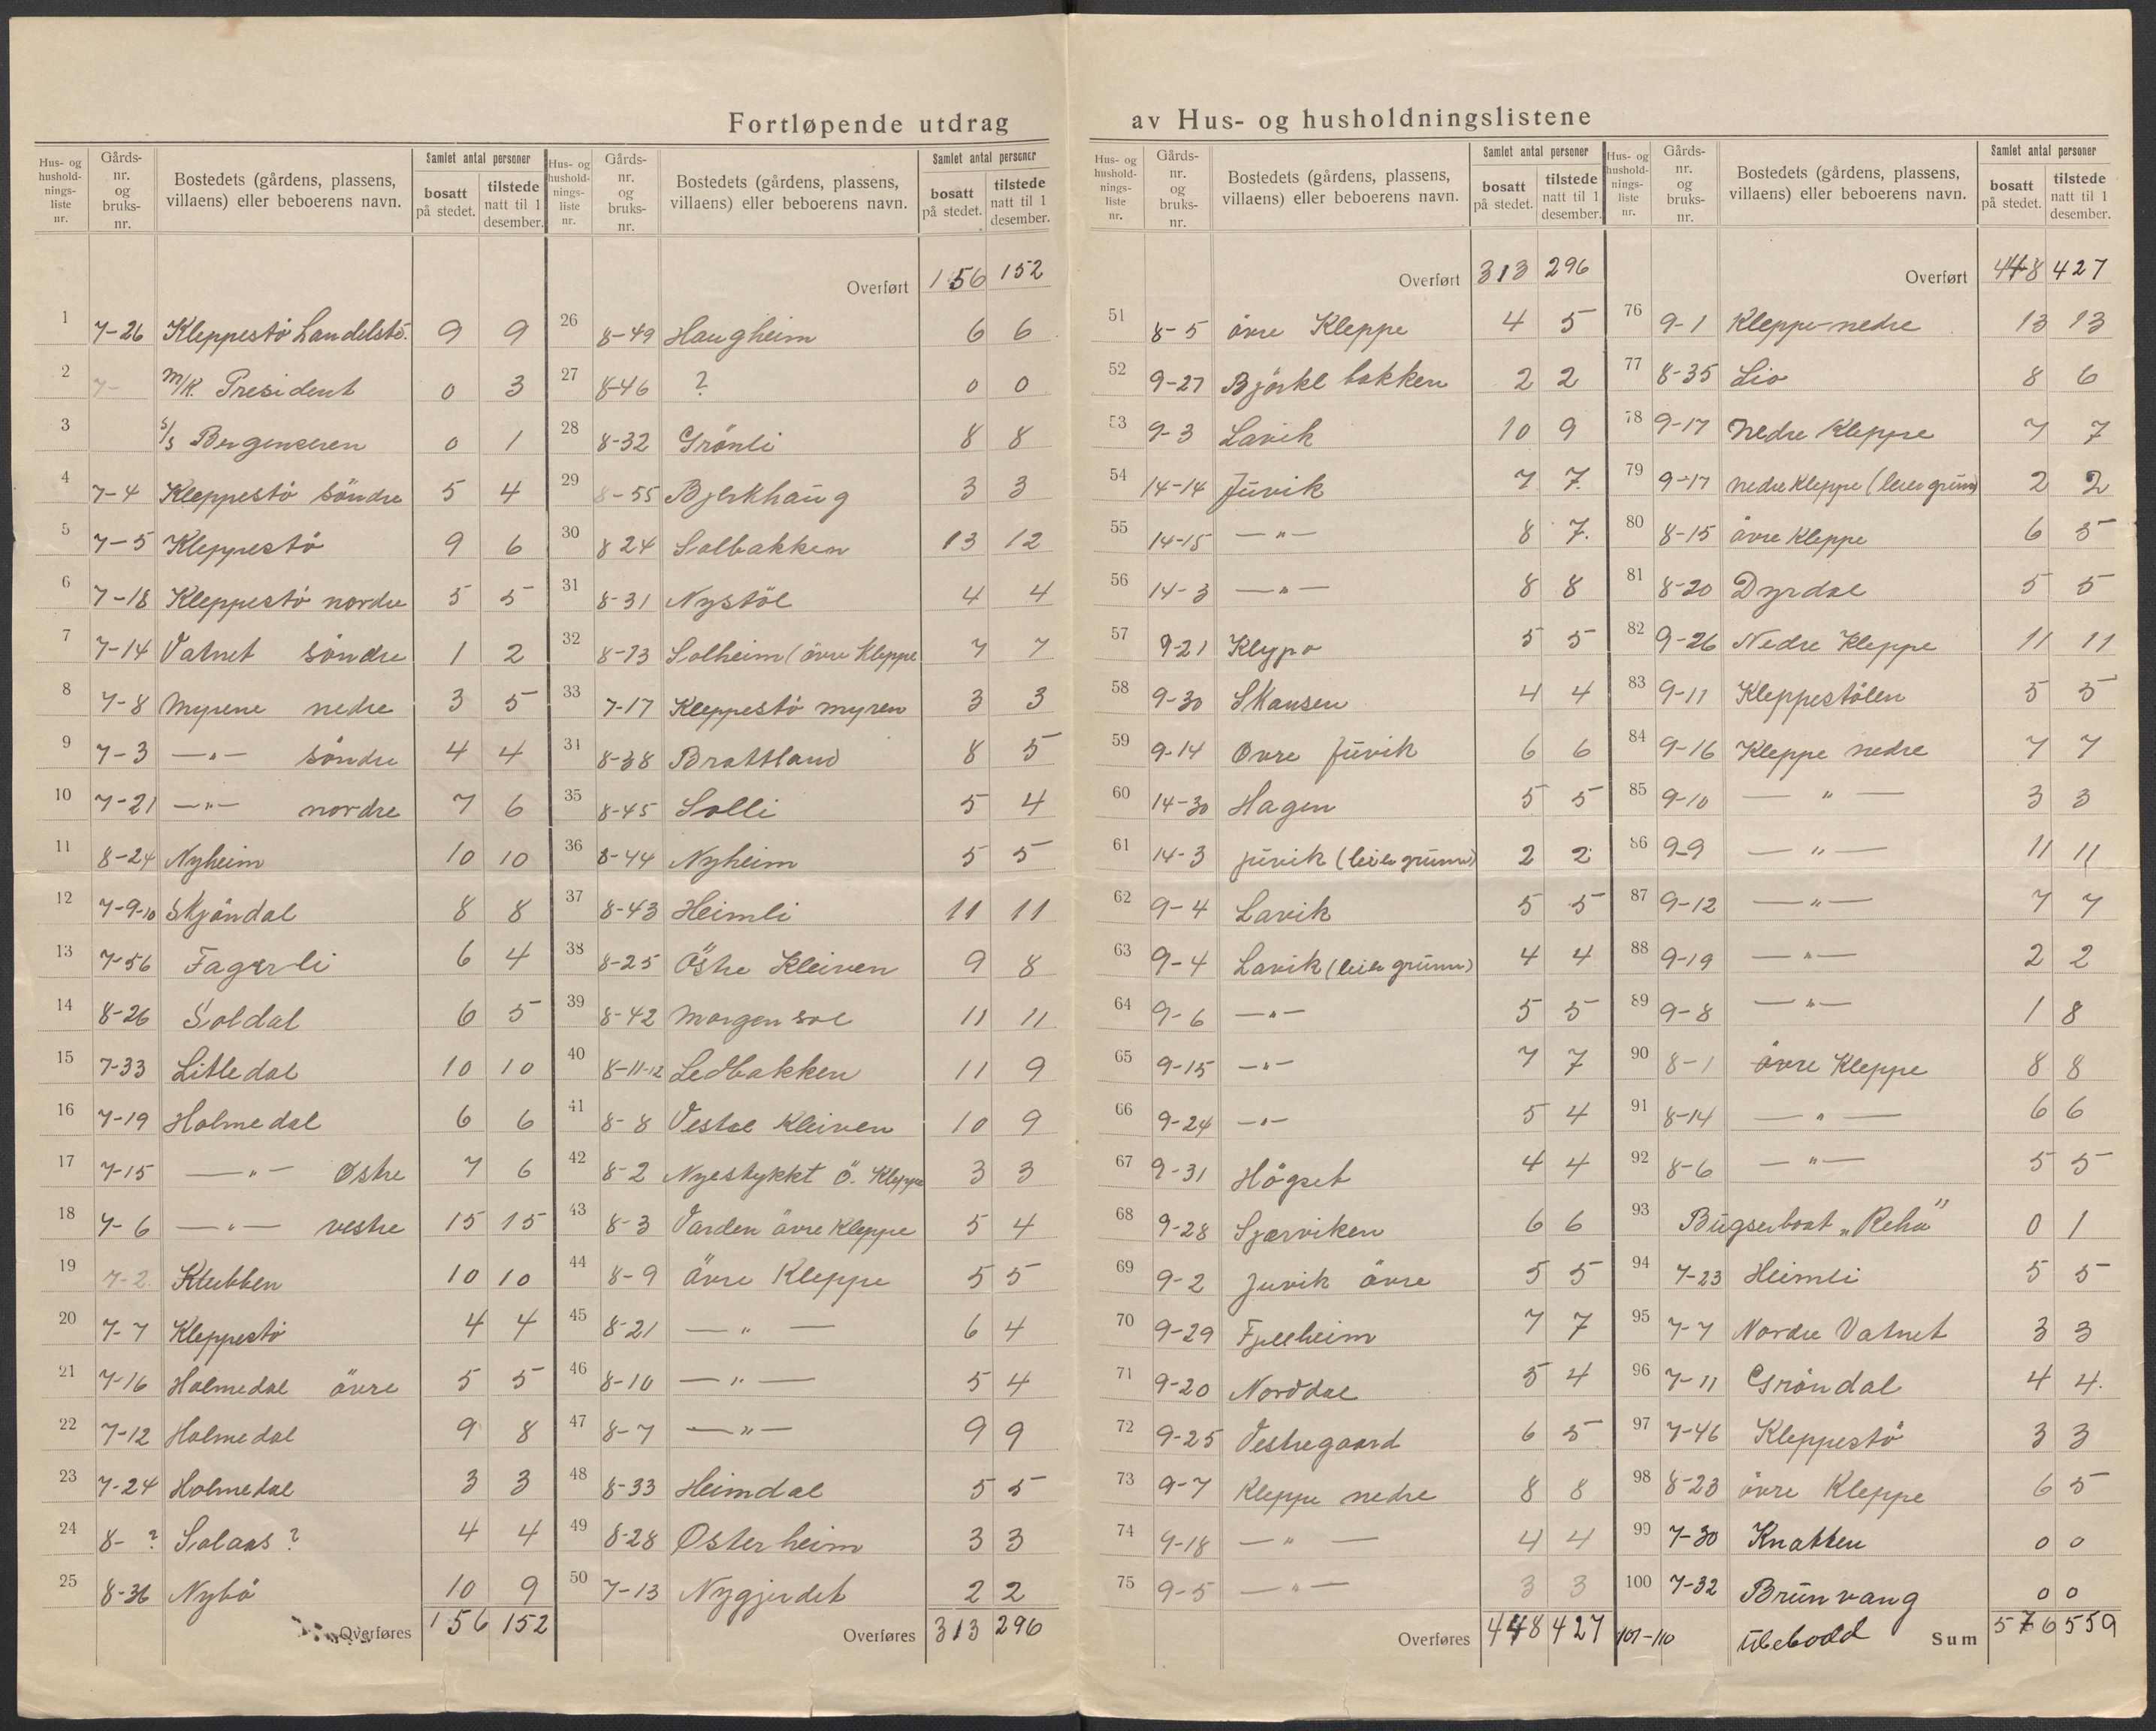 Fortløpende utdrag av Hus- og husholdningslistene
Hus- og hushold-nings-liste nr. | Gårds-nr. og bruks-nr. | Bostedets (gårdens, plassens, villaens) eller beboerens navn. | Samlet antal personer | bosatt på stedet. | tilstede natt til 1 desember.
1 7-26 Kleppestö Landelstö. 9 9
2 7- M/K. President 0 3
3 S/S Bergenseren 0 1
4 7-4 Kleppestö söndre 5 4
5 7-5 Kleppestö 9 6
6 7-18 Kleppestö nordre 5 5
7 7-14 Vatnet söndre 1 2
8 7-8 Myrene nedre 3 5
9 7-3 —"— söndre 4 4
10 7-21 —"— nordre 7 6
11 8-24 Nyheim 10 10
12 7-9-10 Skjöndal 8 8
13 7-56 Fagerli 6 4
14 8-26 Soldal 6 5
15 7-33 Litledal 10 10
16 7-19 Holmedal 6 6
17 7-15 —"— Østre 7 6
18 7-6 —"— vestre 15 15
19 7-2. Klubben 10 10
20 7-7 Kleppestö 4 4
21 7-16 Holmedal övre 5 5
22 7-12 Holmedal 9 8
23 7-24 Holmedal 3 3
24 8- ? Solaas ? 4 4
25 8-36 Nybö 10 9
Overføres 156 152
Hus- og hushold-nings-liste nr. | Gårds-nr. og bruks-nr. | Bostedets (gårdens, plassens, villaens) eller beboerens navn. | Samlet antal personer | bosatt på stedet. | tilstede natt til 1 desember.
Overført 156 152
26 8-49 Haugheim 6 6
27 8-46 ? 0 0
28 8-32 Grönli 8 8
29 8-55 Bjerkhaug 3 3
30 8 24 Solbakken 13 12
31 8-31 Nystöl 4 4
32 8-13 Solheim (övre Kleppe 7 7
33 7-17 Kleppestö myren 3 3
31 8-38 Brattland 8 5
35 8-45 Solli 5 4
36 8-44 Nyheim 5 5
37 8-43 Heimli 11 11
38 8-25 Östre Kleiven 9 8
39 8-42 Morgensol 11 11
40 8-11-12 Ledbakken 11 9
41 8-8 Vestre Kleiven 10 9
42 8-2 Nyestykkt Ö. Kleppe 3 3
43 8-3 Varden övre Kleppe 5 4
44 8-9 Övre Kleppe 5 5
45 8-21 —"— 6 4
46 8-10 —"— 5 4
47 8-7 —"— 9 9
48 8-33 Heimdal 5 5
49 8-28 Østerheim 3 3
50 7-13 Nygjerdet 2 2
Overføres 313 296
Hus- og hushold-nings-liste nr. | Gårds-nr. og bruks-nr. | Bostedets (gårdens, plassens, villaens) eller beboerens navn. | Samlet antal personer | bosatt på stedet. | tilstede natt til 1 desember.
Overført 313 296
51 8-5 övre Kleppe 4 5
52 9-27 Björkebakken 2 2
53 9-3 Lavik 10 9
54 14-14 Juvik 7 7.
55 14-15 —"— 8 7.
56 14-3 —"— 8 8
57 9-21 Klypo 5 5
58 9-30 Skansen 4 4
59 9-14 Øvre Juvik 6 6
60 14-30 Hagen 5 5
61 14-3 Juvik (leier grunn) 2 2
62 9-4 Lavik 5 5
63 9-4 Lavik (leier grunn) 4 4
64 9-6 —"— 5 5
65 9-15 —"— 7 7
66 9-24 —"— 5 4
67 9-31 Högset 4 4
68 9-28 Sjærviken 6 6
69 9-2 Juvik övre 5 5
70 9-29 Fjellheim 7 7
71 9-20 Norddal 5 4
72 9-25 Vestregaard 6 5
73 9-7 Kleppe nedre 8 8
74 9-18 —"— 4 4
75 9-5 —"— 3 3
Overføres 448 427
Hus- og hushold-nings-liste nr. | Gårds-nr. og bruks-nr. | Bostedets (gårdens, plassens, villaens) eller beboerens navn. | Samlet antal personer | bosatt på stedet. | tilstede natt til 1 desember.
Overført 448 427
76 9-1 Kleppe nedre 13 13
77 8-35 Lio 8 6
78 9-17 Nedre Kleppe 7 7
79 9-17 nedre Kleppe (leier grunn) 2 2
80 8-15 övre Kleppe 6 5
81 8-20 Dyrdal 5 5
82 9-26 Nedre Kleppe 11 11
83 9-11 Kleppestölen 5 5
84 9-16 Kleppe nedre 7 7
85 9-10 —"— 3 3
86 9-9 —"— 11 11
87 9-12 —"— 7 7
88 9-19 —"— 2 2
89 9-8 —"— 1 8
90 8-1 övre Kleppe 8 8
91 8-14 —"— 6 6
92 8-6 —"— 5 5
93 Bugserbaat „Reha" 0 1
94 7-23 Heimli 5 5
95 7-7 Nordre Vatnet 3 3
96 7-11 Gröndal 4 4.
97 7-46 Kleppestö 3 3
98 8-23 övre Kleppe 6 5
99 7-30 Knatten 0 0
100 7-32 Brunvang 0 0
101-110 Ubebodd Sum 576 559